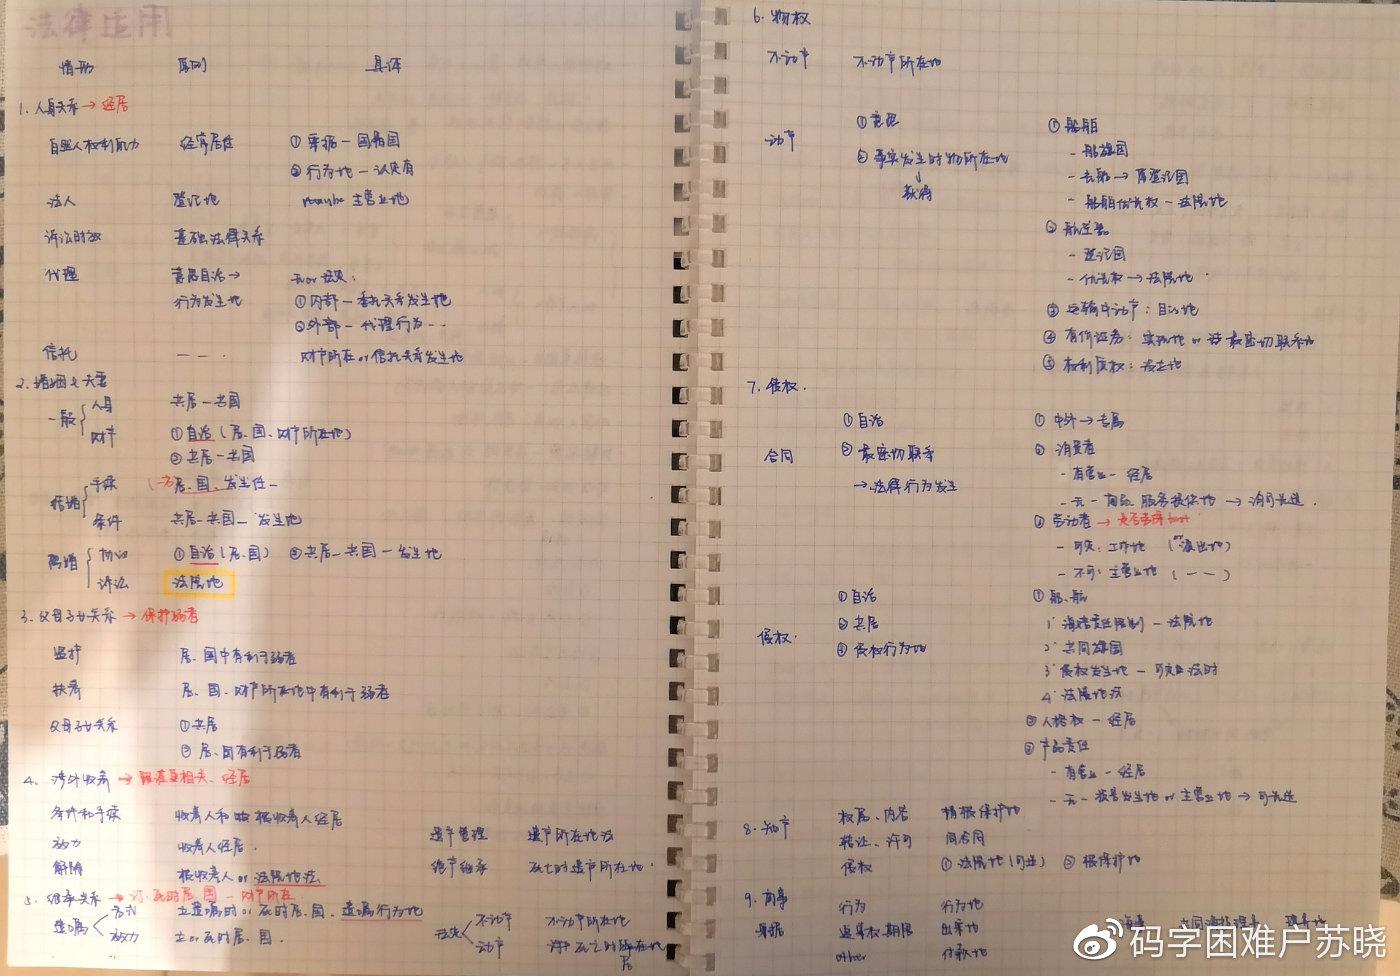 法律适用
情形 原则 具体
1. 人身关系 → 经居
自然人权利能力 经常居住 ① 票据 - 国籍国
② 行为地 - 认定有
法人 登记地 maybe 主营业地
诉讼时效 基础法律关系
代理 意思自治 → 无or
行为发生地 ① 内部 - 委托关系发生地
② 外部 - 代理行为 - - -
信托 — — . 财产所在 or 信托关系发生地
2. 婚姻
一般 人身 共居 - 共国
财产 ① 自治 (居、国、财产所在地)
② 共居 - 共国
结婚 手续 居、国、发生任一
条件 共居 - 共国 - 发生地
离婚 协议 ① 自治 (居、国) ② 共居 - 共国 - 发生地
诉讼 法院地
3. 父母子女关系 → 保护弱者
监护 居、国中有利于弱者
扶养 居、国、财产所在地中有利于弱者
父母子女关系 ① 共居
② 居、国有利于弱者
4. 涉外收养 → 经居
条件和手续 收养人和被收养人经居
效力 收养人经居.
解除 被收养人 or 法院地法
5. 继承关系 → 死时居、国 - 财产所在
遗嘱 方式 立遗嘱时 or 死时居、国、遗嘱行为地
效力 立 or 死时居、国.
遗产管理 遗产所在地法
绝产继承 死亡时遗产所在地.
法定 不动产 不动产所在地
动产 死亡时
居
6. 物权
不动产 不动产所在地
动产 ① 意思
② 事实发生时物所在地
↓
获得
① 船舶
- 船旗国
- 光船 → 原登记国
- 船舶优先权 - 法院地
② 航空器
- 登记国
- 优先权 → 法院地
③ 运输中动产：目的地
④ 有价证券：实现地 or 最密切联系地
⑤ 权利质权：发生地
7. 债权.
合同 ① 自治
② 最密切联系
→ 法律行为发生
① 中外 → 专属
② 消费者
- 有营业 - 经居
- 无 - 商品、服务提供地 →
③ 劳动者 →
- 可定：工作地 (派出地)
- 不可：主营业地 (— —)
侵权. ① 自治
② 共居
③ 侵权行为地
① 船、航
1' 海损责任限制 - 法院地
2' 共同旗国
3' 侵权发生地
4' 法院地法
② 人格权 - 经居
③ 产品责任
- 有营业 - 经居
- 无 - 损害发生地 or 主营业地 → 可先选
8. 知产 权属、内容 被保护地
转让、许可 同合同
侵权 ① 法院地(可选) ② 被保护地
9. 商事
票据 行为 行为地
追索权期限 出票地
other 付款地
海事 共同海损理算 理算地
@码字困难户苏晓